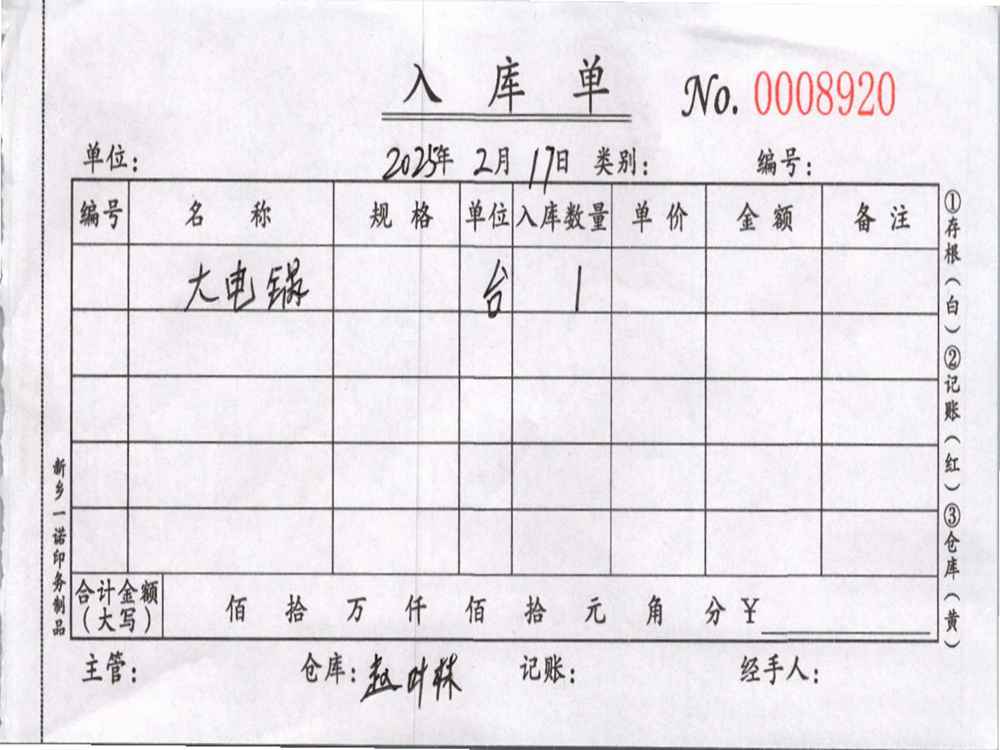 入库单 No. 0008920
单位： 2025年 2月 17日 类别： 编号：
编号 名称 规格 单位 入库数量 单价 金额 备注
大电锅 台 1
合计金额（大写） 佰 拾 万 仟 佰 拾 元 角 分 ￥
主管： 仓库：赵叶林 记账： 经手人：
①存根（白）②记账（红）③仓库（黄）
新乡一诺印务制品